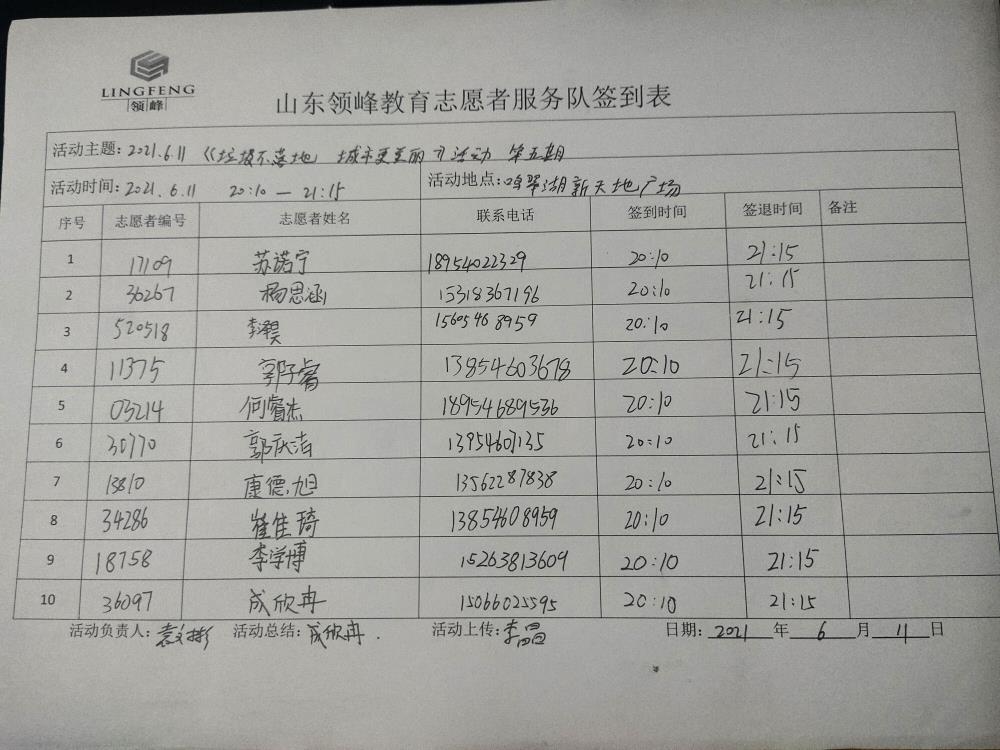 LINGFENG
领峰
山东领峰教育志愿者服务队签到表
活动主题：2021.6.11 《垃圾不落地 城市更美丽》活动 第五期
活动时间：2021.6.11 20:10—21:15 活动地点：鸣翠湖新天地广场
序号 志愿者编号 志愿者姓名 联系电话 签到时间 签退时间 备注
1 17109 苏诺宁 18954022329 20:10 21:15
2 36267 杨思涵 15318367196 20:10 21:15
3 520518 李昊 15605468959 20:10 21:15
4 11375 郭子睿 13854603678 20:10 21:15
5 03214 何睿杰 18954689536 20:10 21:15
6 30770 郭庆洁 20:10 21:15
7 13810 康德旭 13562287838 20:10 21:15
8 34286 崔佳琦 13854608959 20:10 21:15
9 18758 李学博 15263813609 20:10 21:15
10 36097 成欣冉 15066025595 20:10 21:15
活动负责人：袁文彬 活动总结：成欣冉. 活动上传：李昌 日期：2021年6月11日